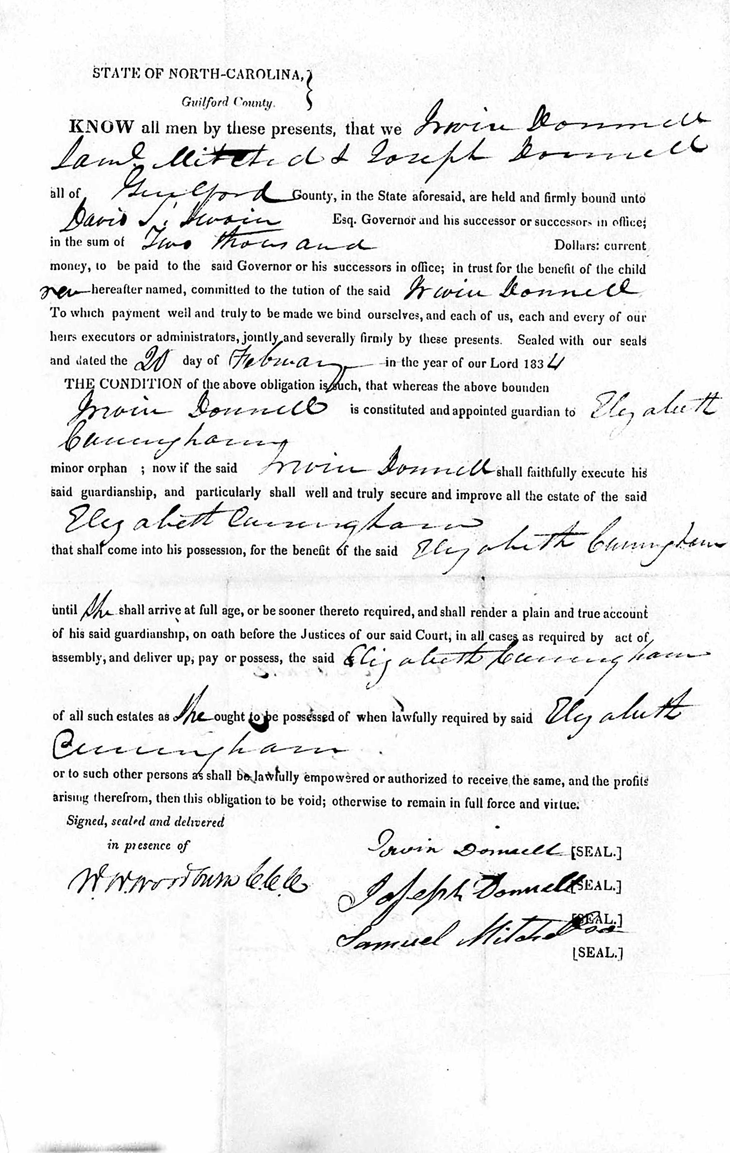 STATE OF NORTH-CAROLINA,
Guilford County.
KNOW all men by these presents, that we Irwin Donnell
Saml Mitchel & Joseph Donnell
all of Guilford County, in the State aforesaid, are held and firmly bound unto
David Swain Esq. Governor and his successor or successors in office;
in the sum of Two thousand Dollars: current
money, to be paid to the said Governor or his successors in office; in trust for the benefit of the child
ren hereafter named, committed to the tution of the said Irwin Donnell
To which payment well and truly to be made we bind ourselves, and each of us, each and every of our
heirs executors or administrators, jointly and severally firmly by these presents. Sealed with our seals
and dated the 20 day of February in the year of our Lord 1834
THE CONDITION of the above obligation is such, that whereas the above bounden
Irwin Donnell is constituted and appointed guardian to Elizabeth
Cunningham
minor orphan ; now if the said Irwin Donnell shall faithfully execute his
said guardianship, and particularly shall well and truly secure and improve all the estate of the said
Elizabeth Cunningham
that shall come into his possession, for the benefit of the said Elizabeth Cunningham
until She shall arrive at full age, or be sooner thereto required, and shall render a plain and true account
of his said guardianship, on oath before the Justices of our said Court, in all cases as required by act of
assembly, and deliver up, pay or possess, the said Elizabeth Cunningham
of all such estates as She ought to be possessed of when lawfully required by said Elizabeth
Cunningham
or to such other persons as shall be lawfully empowered or authorized to receive the same, and the profits
arising therefrom, then this obligation to be void; otherwise to remain in full force and virtue.
Signed, sealed and delivered
in presence of
Irwin Donnell [SEAL.]
Joseph Donnell [SEAL.]
Samuel Mitchel [SEAL.]
[SEAL.]